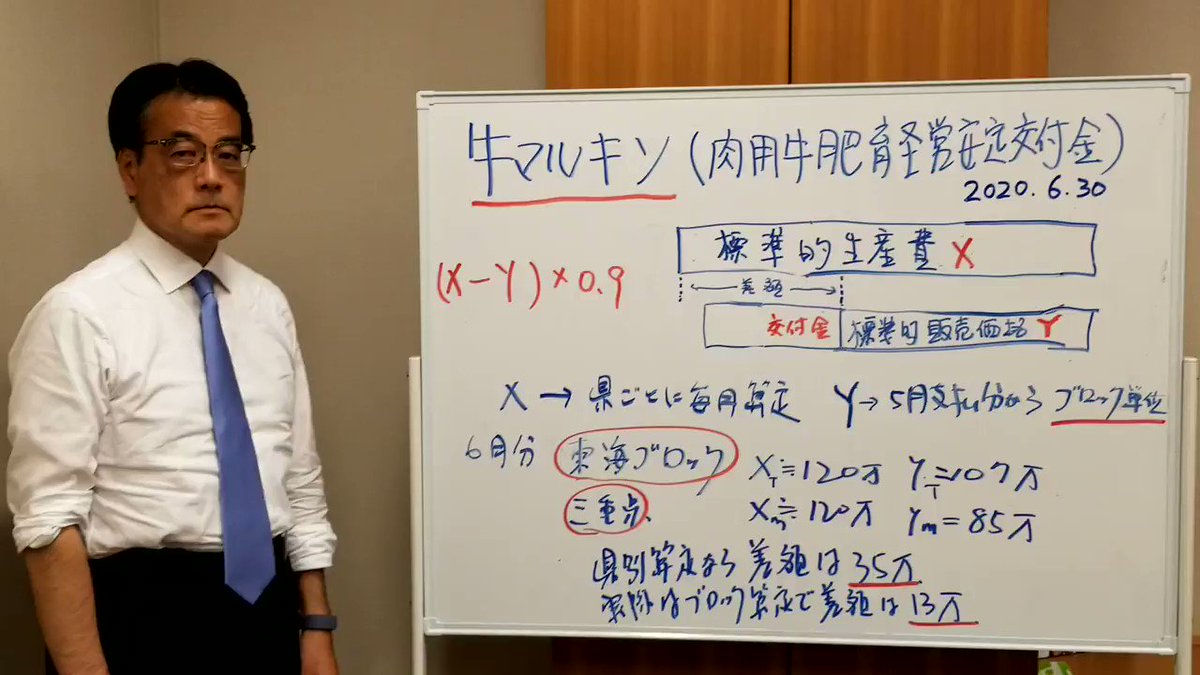 牛マルキン(肉用牛肥育経営安定交付金)
2020.6.30
標準的生産費 X
(X-Y)×0.9
差額
交付金 標準的販売価格 Y
X→県ごとに毎月算定 Y→5月支払い分から ブロック単位
6月分 東海ブロック XT≒120万 YT≒107万
三重県 Xm≒120万 Ym=85万
県別算定なら差額は35万
実際はブロック算定で差額は13万